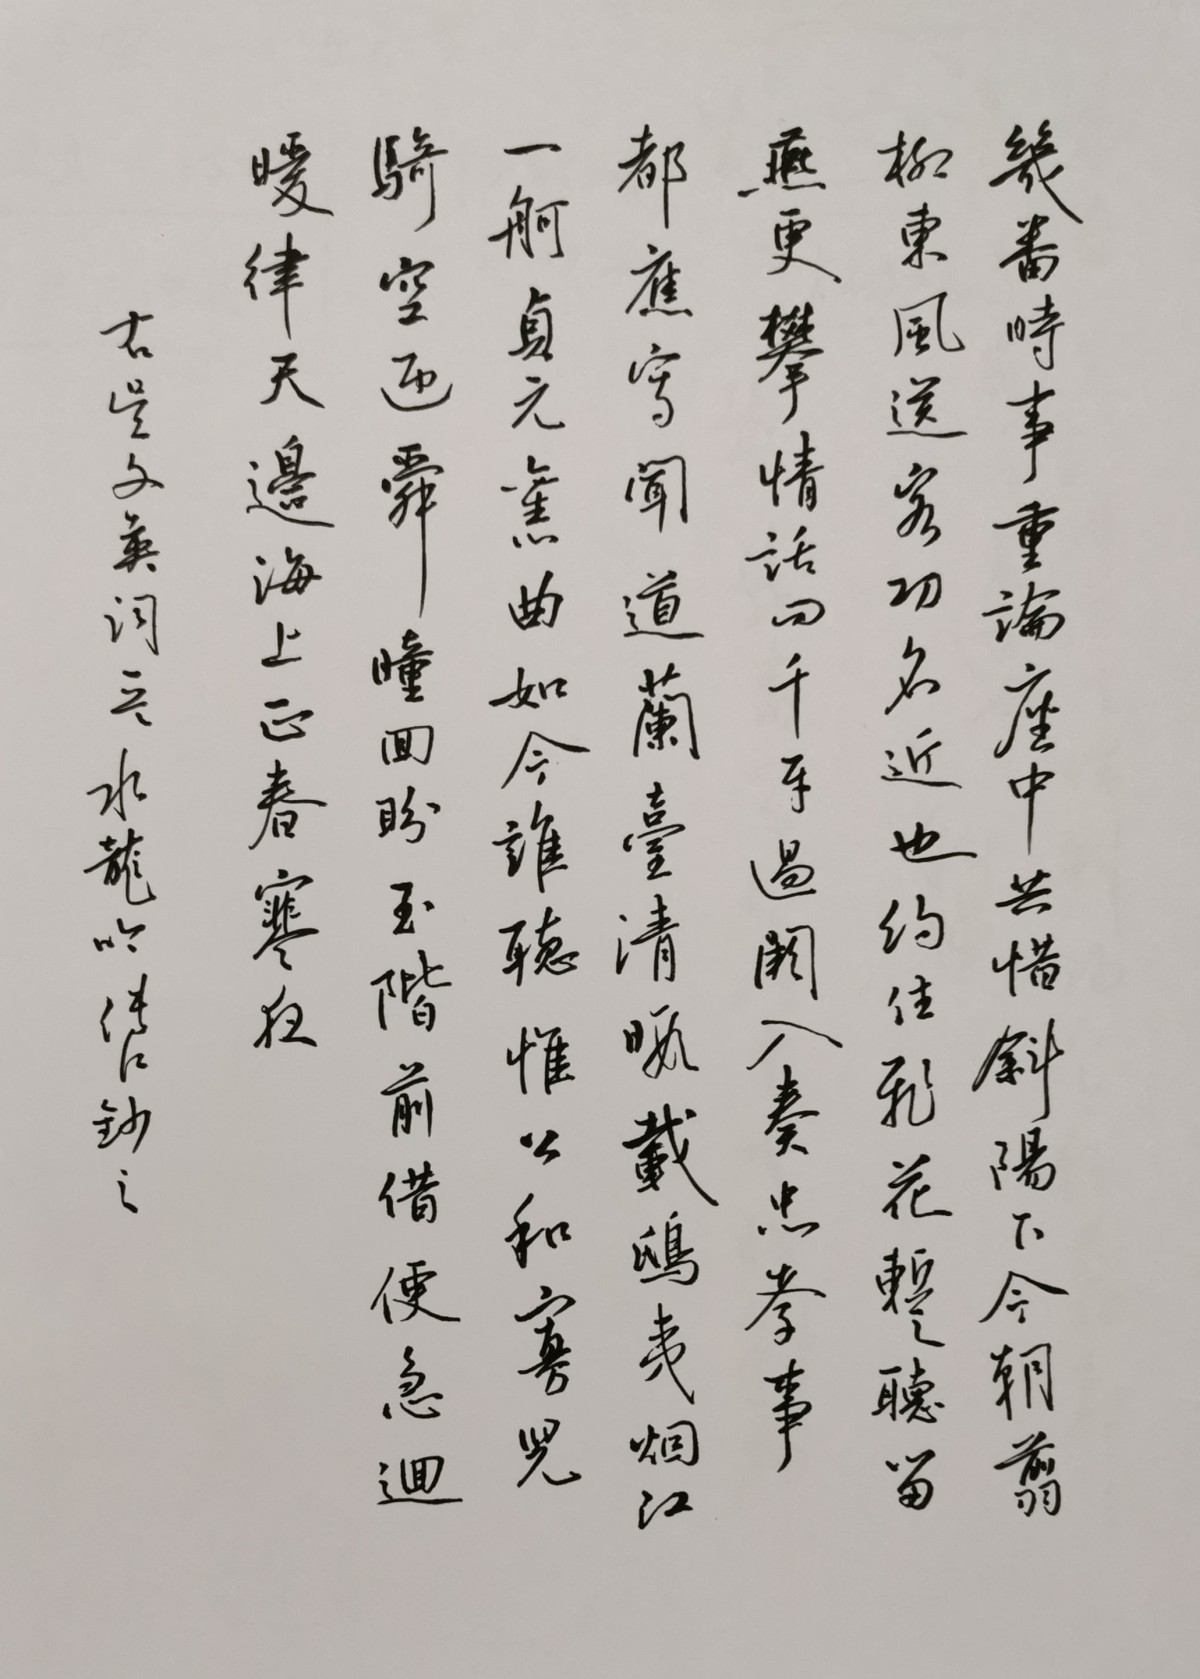 幾番時事重論座中共惜斜陽下今朝翦
柳東風送客功名近也約住飛花蹔聽留
燕更攀情話問千牙過闕入奏忠孝事
都應寫聞道蘭臺清暇載鴟夷烟江
一舸貞元舊曲如今誰聽惟公和寡兒
騎空迎舜瞳回盼玉階前借便急迴
暖律天邊海上正春寒夜
右吳文英詞水龍吟鈔之